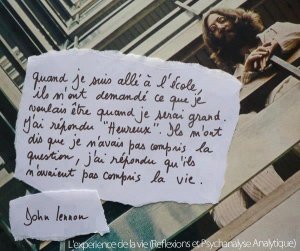 quand je suis allé à l'école,
ils m'ont demandé ce que je
voulais être quand je serai grand.
J'ai répondu "Heureux". Ils m'ont
dis que je n'avais pas compris la
question, j'ai répondu qu'ils
n'avaient pas compris la vie.
John Lennon
L'experience de la vie (Reflexions et Psychanalyse Analytique)